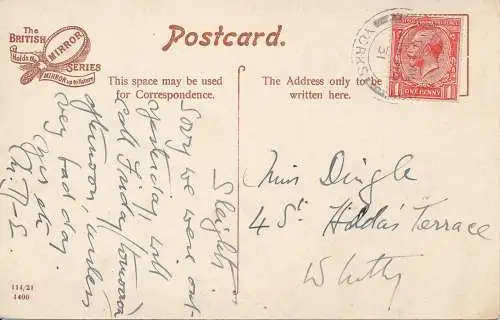 The
BRITISH
MIRROR
SERIES
Holds the
MIRROR up to Nature
Postcard.
This space may be used
for Correspondence.
The Address only to be
written here.
YORKS
ONE PENNY
Sleights
Sorry we were out
yesterday, will
call Friday (tomorrow
afternoon) unless
very bad day.
Yrs etc
Miss Dingle
4 St. Hilda's Terrace
Whitby
114/21
1400